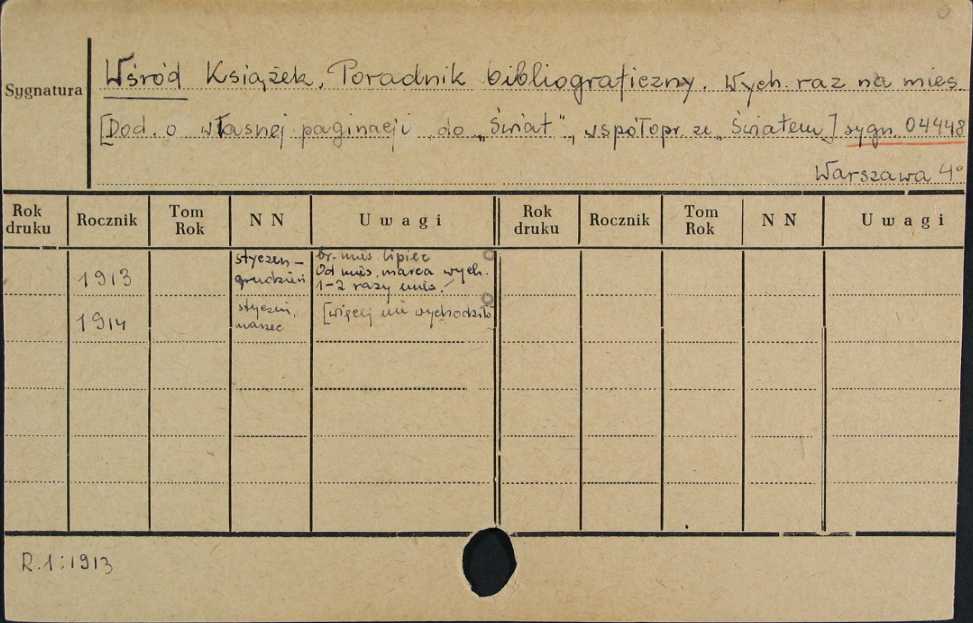 Sygnatura
Wśród Książek. Poradnik bibliograficzny. Wych. raz na mies.
[Dod. o własnej paginacji do „Świat”, współopr. ze „Światem] sygn. 04448
Warszawa 4°
Rok druku Rocznik Tom Rok N N Uwagi Rok druku Rocznik Tom Rok N N Uwagi
1913 styczeń – grudzień br. mies. lipiec
Od mies. marca wych.
1-2 razy mies.
1914 styczeń, marzec [więcej nie wychodziło
R.1:1913